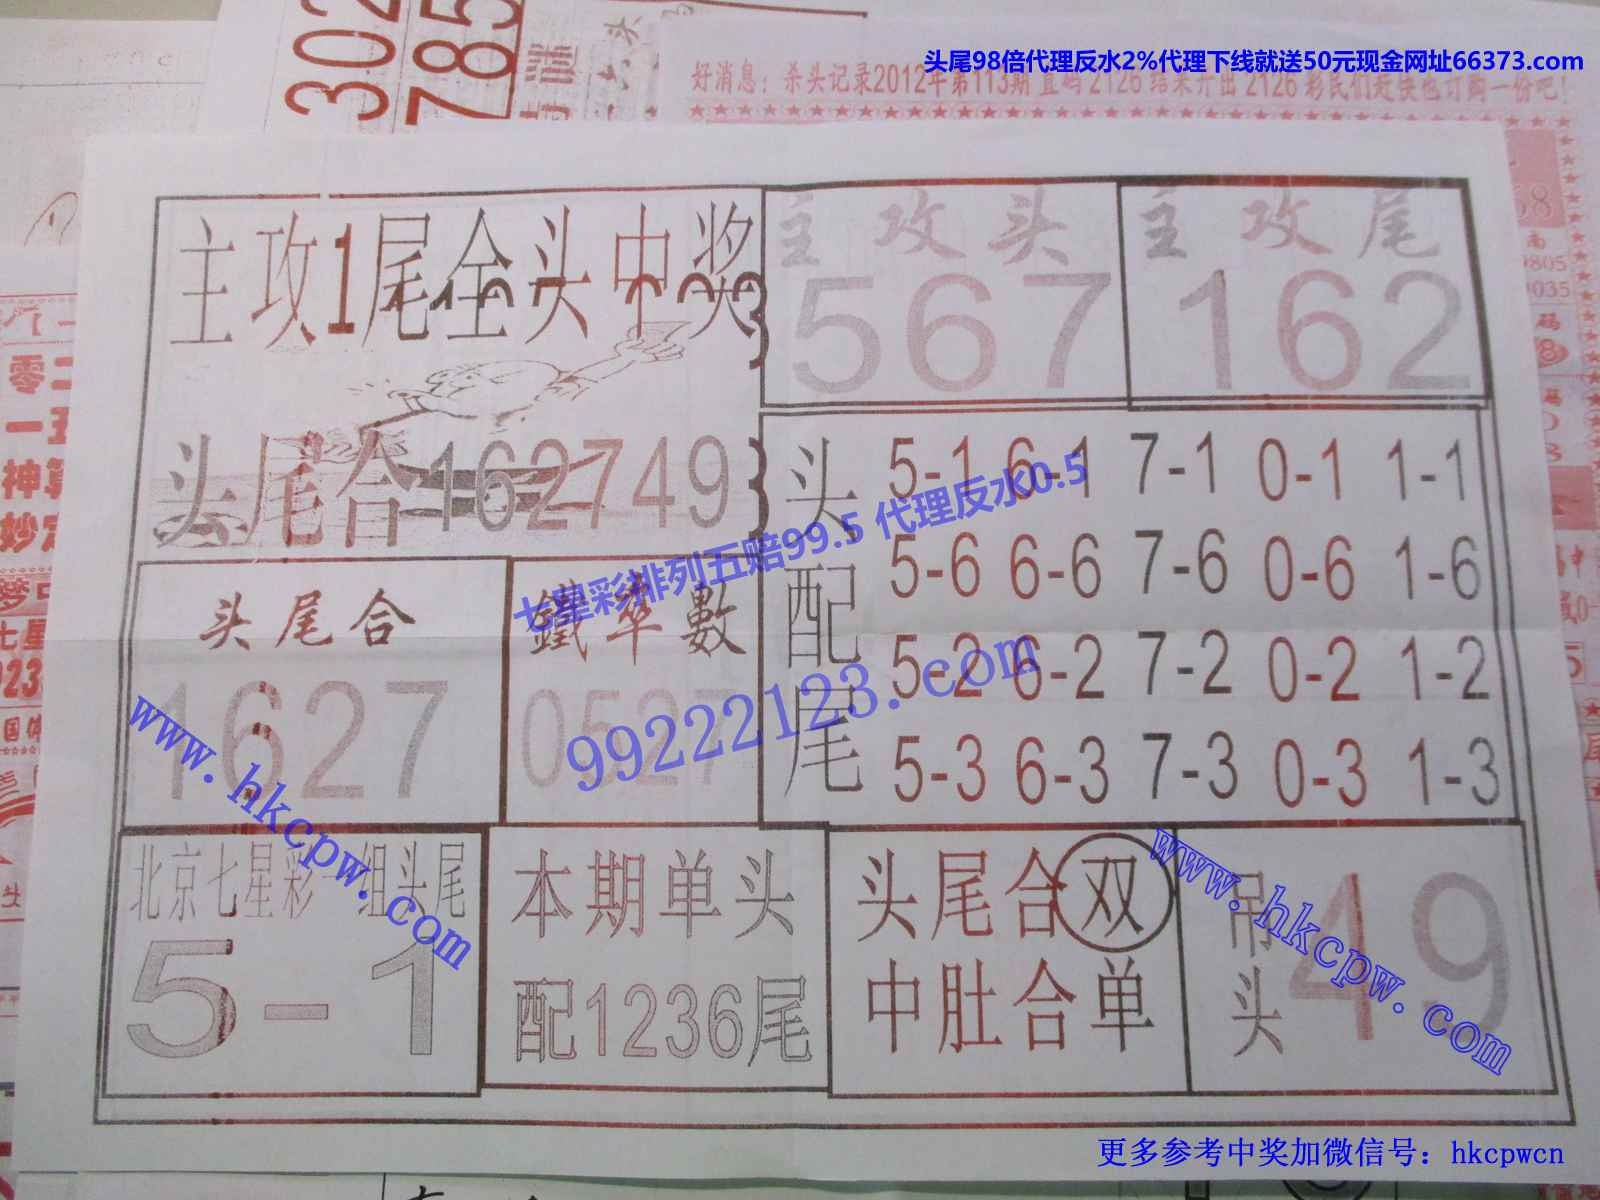 302
785
头尾98倍代理反水2%代理下线就送50元现金网址66373.com
好消息：杀头记录2012年第113期直码2126结果开出2126彩民们赶快也订购一份吧！
主攻1尾全头中奖
主攻头
567
主攻尾
162
头尾合162749
头配尾
5-1 6-1 7-1 0-1 1-1
5-6 6-6 7-6 0-6 1-6
5-2 6-2 7-2 0-2 1-2
5-3 6-3 7-3 0-3 1-3
七星彩排列五赔99.5 代理反水0.5
头尾合
1627
鐵率數
0527
99222123.com
www.hkcpw.com
北京七星彩一组头尾
5-1
本期单头
配1236尾
头尾合双
中肚合单
吊头
49
www.hkcpw.com
更多参考中奖加微信号：hkcpwcn